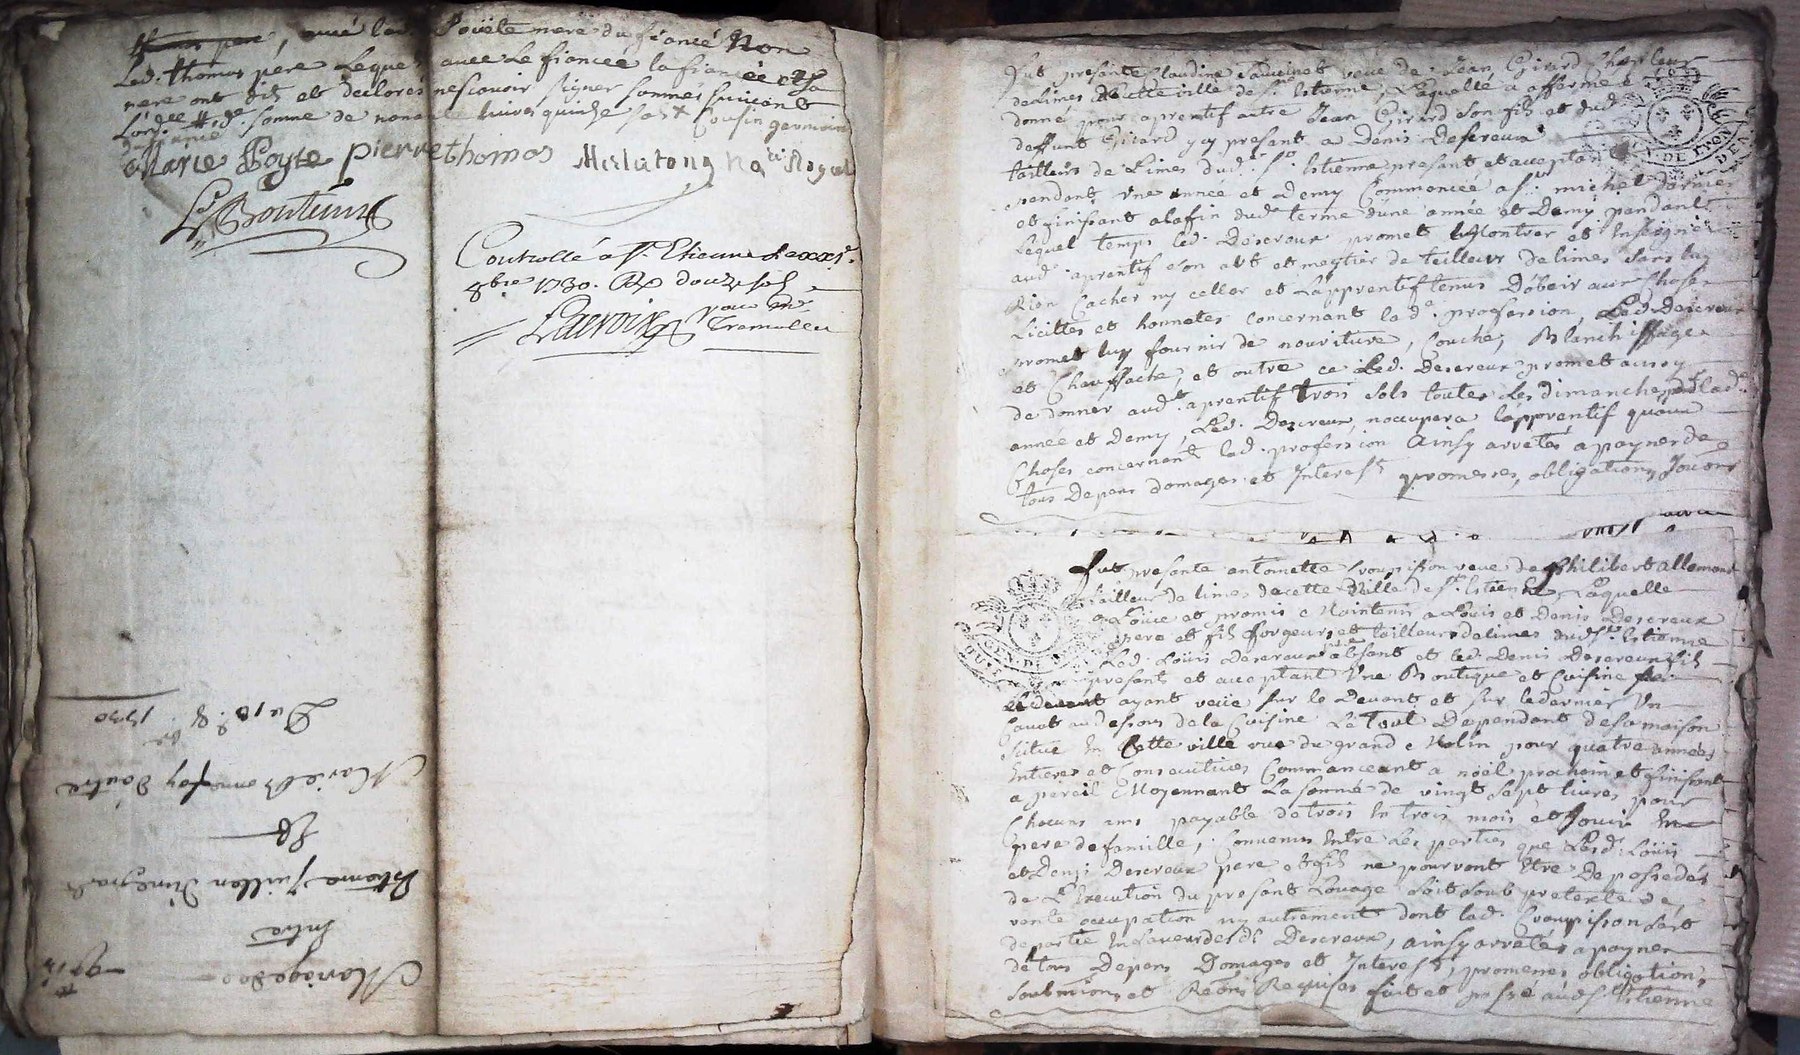 père, avec lad. Poyete mere du fiancé Non
Led. thomas père Lequel avec Le fiancée la fiancée et Sa
mere ont dit et declarés ne scavoir signer sommés suivant
L'ord.ce somme de livres quinze sols Cousin germain
Marie Poyte pierre thomas
Controllé a St. Etienne Le xxxi.e
8bre 1730. R douze sols
Lacroix pour Mr
Tremollet
Mariage de 9
Entre
Et
Marie Bonnefoy d'autre
Du 10e. 8bre 1730
Fut presante Claudine Sauvinet veue de Jean Girard tailleur
de Limes de cette ville de St. Estienne, Laquelle a affermé &
donné pour aprentif autre Jean Girard Son fils et dud.
deffunt Girard y cy presant a Denis Descreux
tailleurs de Limes dud. St. Estienne presant et acceptant
pendant Une année et Demy Commencée a St. michel dernier
et finissant a la fin dud. terme d'une année et Demy, pendant
Lequel temps Led. Descreux promet Montrer et Enseigner
aud. aprentif son art et mestier de tailleur de limes sans luy
Rien Cacher ny celler et L'apprentif tenus D'obeir aux Choses
Licittes et honnetes concernant lad. profession, Led. Descreux
promet luy fournir de nouriture, Couche, Blanchissage
et Chauffache, et outre ce Led. Descreux promet aussy
de donner aud. aprentif trois sols toutes Les dimanches pd. lad.
année et Demy, Led. Descreux n'occupera l'apprentif qu'aux
Choses concernant lad. profession Ainsy arretés a payne de
tous Depens domages et Interest promesses, obligations,
Fut presante antoinette veue de Philibert allemand
tailleur de limes de cette Ville de St. Estienne, Laquelle
a Loüé et promis Maintenir a Loüis et Denis Descreux
pere et fils forgeurs et tailleurs de limes dud. St. Estienne
Led. Loüis Descreux absant et led. Denis Descreux fils
presant et acceptant Une Boutique et Cuisine
ayant veüe sur le Devant et sur le dernier Un
Cavot au dessous de la Cuisine Le tout Dependant de sa maison
situé En Cette ville rue du grand Molin pour quatre années
Entieres et Consecutives Commanceant a noël prochain et finissant
a pareil Moyennant La somme de vingt sept livres pour
Chacuns ans payable de trois En trois mois et Jouir En
pere de famille, Convenus Entre Les parties que Lesd. Loüis
et Denis Descreux pere et fils ne pourront Etre Depossedés
de L'Execution du presant Louage soit soub pretexte de
vente occupation ny autrement dont lad. sert
de partie En faveur desd. Descreux, ainsy arretés a payne
de tous Depens Domages et Interest, promesses obligations,
soubmions et Requises fait et passé aud. St. Estienne